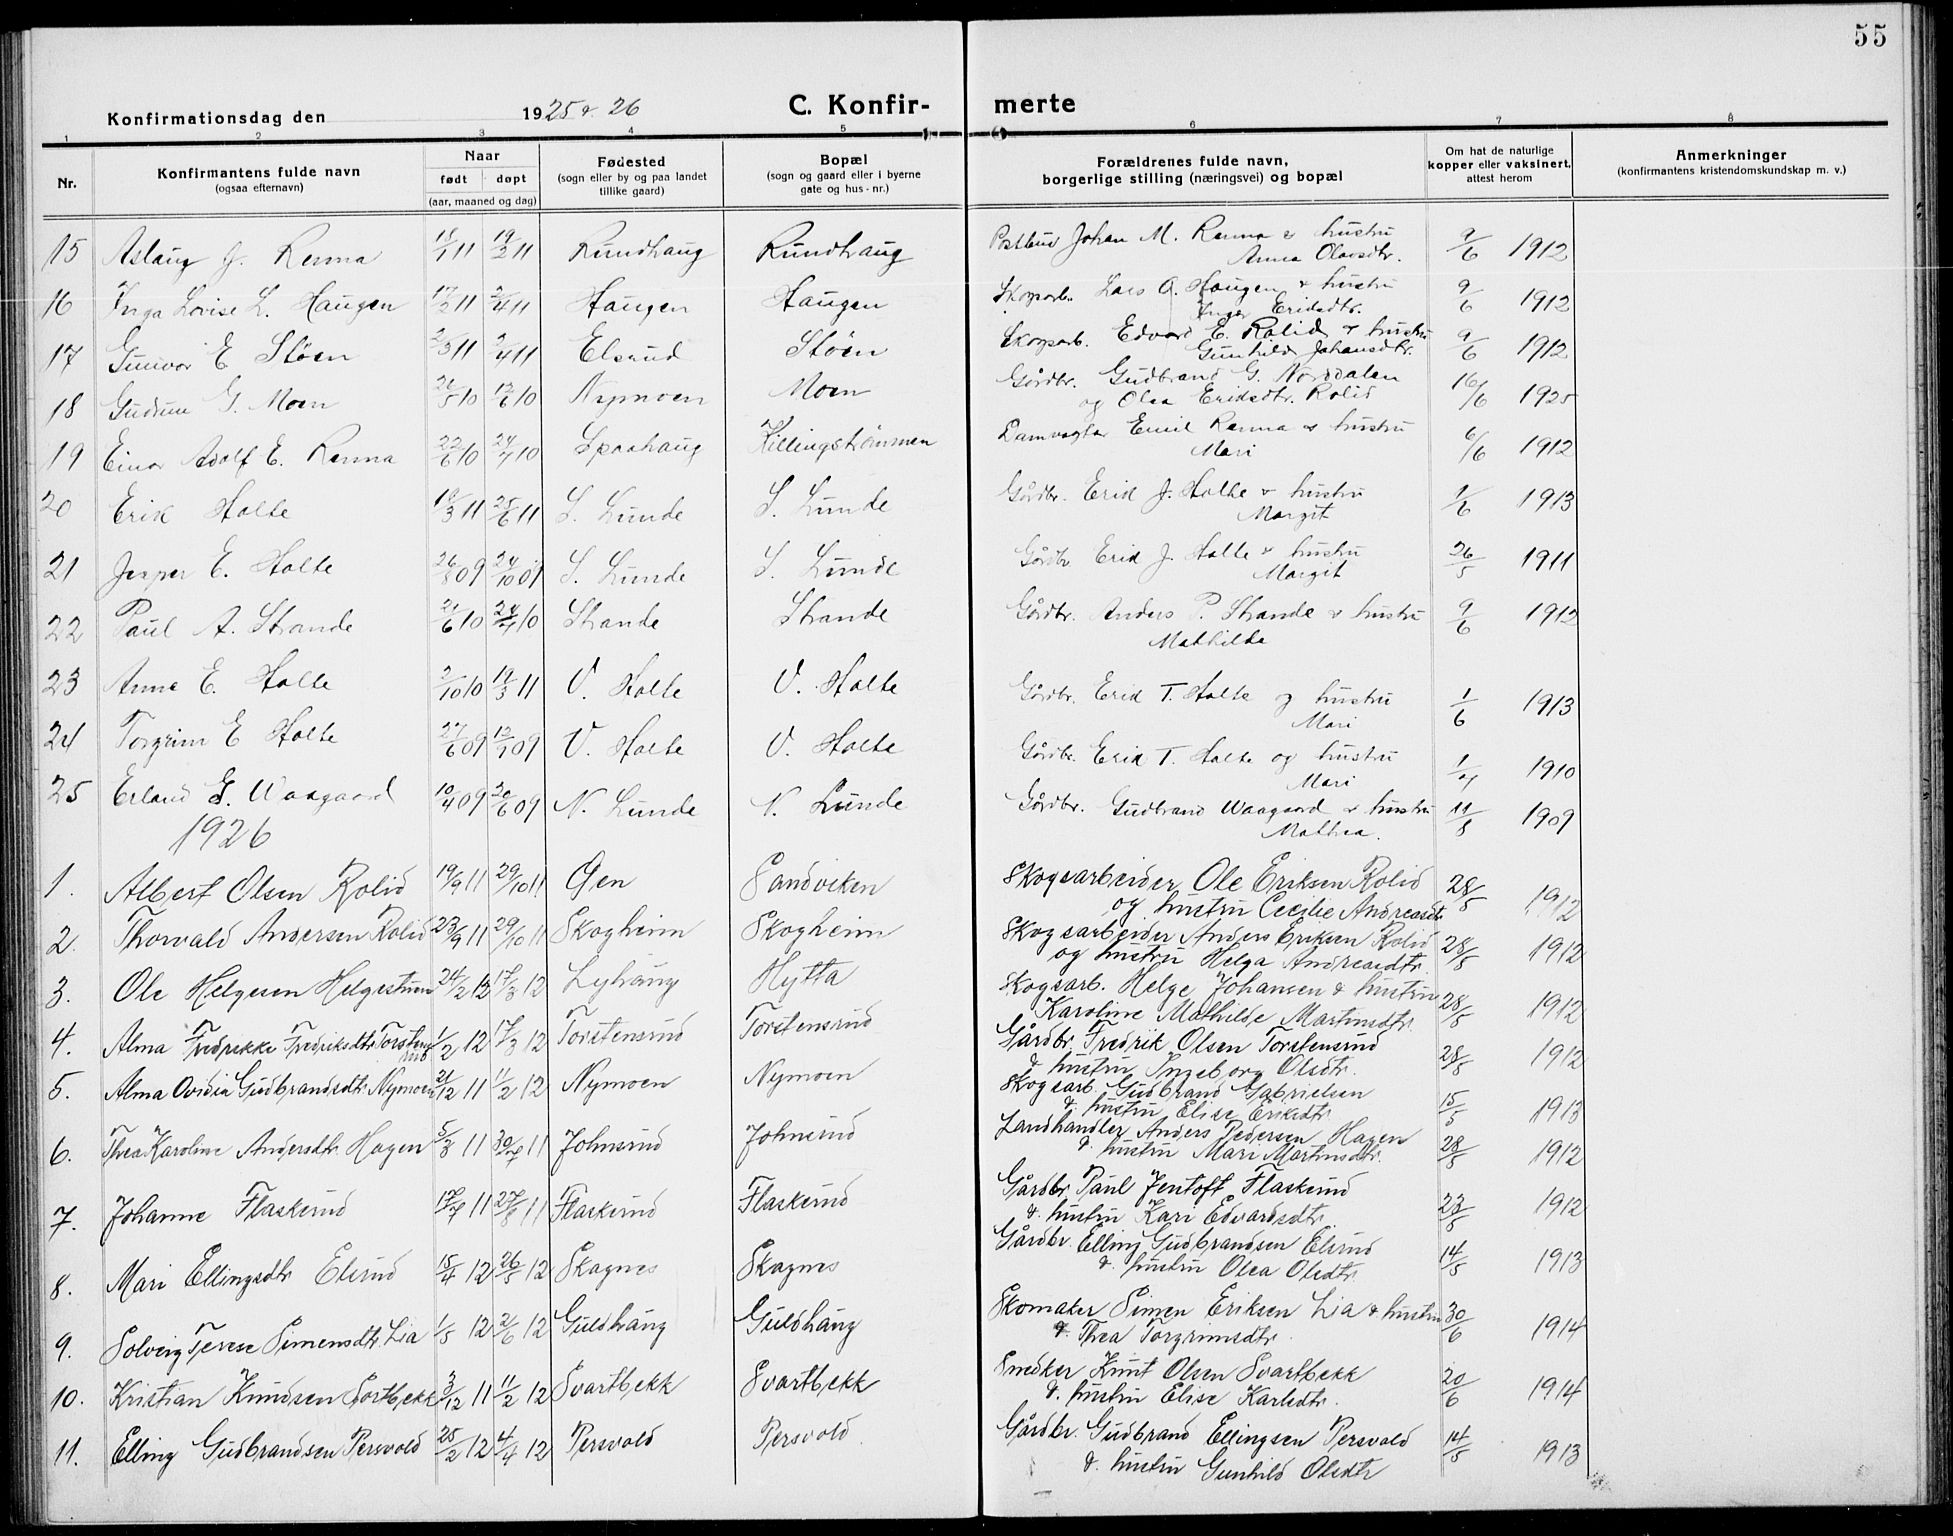 55
Konfirmationsdag den 1925 & 26 C. Konfir- merte
1 2 3 4 5 6 7 8
Nr.
Konfirmantens fulde navn
(ogsaa efternavn)
Naar
født døpt
(aar, maaned og dag)
Fødested
(sogn eller by og paa landet
tillike gaard)
Bopæl
(sogn og gaard eller i byerne
gate og hus-nr.)
Forældrenes fulde navn,
borgerlige stilling (næringsvei) og bopæl
Om hat de naturlige
kopper eller vaksinert,
attest herom
Anmerkninger
(konfirmantens kristendomskundskap m. v.)
15 Aslaug J. Renna 11 19/2 11 Rundhaug Rundhaug Postbud Johan M. Renna & hustru 9/6 1912
Anna Olavsdtr.
16 Inga Lovise L. Haugen 17/2 11 2/4 11 Haugen Haugen Skogarb. Lars A. Haugen & hustru 9/6 1912
Inger Eriksdtr.
17 Gunvor E Støen 2/3 11 2/4 11 Elsrud Støen Skogsarb. Edvard E. Rolid & hustru 9/6 1912
Gunhild Johansdtr.
18 Gudrun G. Moen 26/5 10 12/6 10 Nymoen Moen Gårdbr. Gudbrand G. Norddalen 16/6 1925
og Olea Eriksdtr. Rolid
19 Einar Adolf E. Renna 22/6 10 24/7 10 Spaahaug Killingstrømmen Damvogter Emil Renna & hustru 6/6 1912
Mari
20 Erik Holte 10/3 11 25/6 11 S. Lunde S. Lunde Gårdbr. Erik J. Holte & hustru 1/6 1913
Margit
21 Jesper E. Holte 26/8 09 24/10 09 S. Lunde S. Lunde Gårdbr Erik J. Holte & hustru 26/5 1911
Margit
22 Paul A. Strande 21/6 10 24/7 10 Strande Strande Gårdbr. Anders P. Strande & hustru 9/6 1912
Mathilde
23 Anne E. Holte 2/10 10 19/3 11 V. Holte V. Holte Gårdbr. Erik T. Holte og hustru 1/6 1913
Mari
24 Torgrim E Holte 27/6 09 09 V. Holte V. Holte Gårdbr. Erik T. Holte og hustru 1/7 1910
Mari
25 Erland G. Waagaard 10/4 09 20/6 09 N. Lunde N. Lunde Gårdbr. Gudbrand Waagaard & hustru 11/8 1909
Mathea.
1926
1. Albert Olsen Rolid 19/9 11 29/10 11 Øen Sandviken Skogsarbeider Ole Eriksen Rolid 28/5 1912
og hustru Cecilie Andreasdtr
2. Thorvald Andersen Rolid 23/9 11 29/10 11 Skogheim Skogheim Skogsarbeider Anders Eriksen Rolid 28/5 1912
og hustru Helga Andreasdtr.
3. Ole Helgesen Helgestuen 24/2 12 17/3 12 Lyhaug Hytta Skogsarb. Helge Johansen & hustru 28/5 1912
Karoline Mathilde Martinsdtr.
4. Alma Fredrikke Fredriksdtr. Torstens 1/2 12 17/3 12 Torstensrud Torstensrud Gårdbr. Fredrik Olsen Torstensrud 28/5 1912
rud & hustru Ingeborg Olsdtr.
5. Alma Ovidia Gudbrandsdtr. Nymoen 21/12 11 11/2 12 Nymoen Nymoen Skogsarb. Gudbrand Gabrielsen 15/5 1913
& hustru Elise Eriksdtr
6. Thea Karoline Andersdtr. Hagen 5/3 11 30/7 11 Johnsrud Johnsrud Landhandler Anders Pedersen Hagen 28/5 1912
& hustru Mari Martinsdtr.
7. Johanne Flaskerud 17/7 11 27/8 11 Flaskerud Flaskerud Gårdbr. Paul Jentoft Flaskerud 28/5 1912
& hustru Kari Edvardsdtr.
8. Mari Ellingsdtr Elsrud 15/4 12 26/5 12 Skagnes Skagnes Gårdbr. Elling Gudbrandsen Elsrud 14/5 1913
& hustru Olea Olsdtr
9. Solveig Terese Simensdtr. Lia 1/5 12 2/6 12 Guldhaug Guldhaug Skomaker Simen Eriksen Lia & hustru 30/6 1914
& Thea Torgrimsdtr.
10. Kristian Knudsen Sortbekk 3/12 11 11/2 12 Svartbekk Svartbekk Snedker Knut Olsen Svartbekk 20/6 1914
& hustru Elise Karlsdtr.
11. Elling Gudbrandsen Persvold 25/2 12 4/4 12 Persvold Persvold Gårdbr. Gudbrand Ellingsen Persvold 14/5 1913
& hustru Gunhild Olsdtr